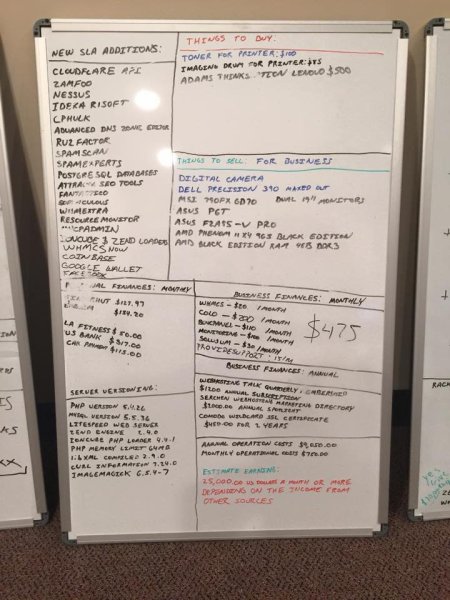 NEW SLA ADDITIONS:
CLOUDFLARE API
ZAMFOO
NESSUS
IDERA R1SOFT
CPHULK
ADVANCED DNS ZONE EDITOR
RV2 FACTOR
SPAMSCAN
SPAMEXPERTS
POSTGRE SQL DATABASES
ATTRACTA SEO TOOLS
FANTASTICO
WHMEXTRA
RESOURCE MONITOR
IONCUBE & ZEND LOADER
WHMCS NOW
COINBASE
GOOGLE WALLET
FACEBOOK
THINGS TO BUY:
TONER FOR PRINTER: $100
IMAGING DRUM FOR PRINTER:
ADAMS THINKS LENOVO $500
THINGS TO SELL: FOR BUSINESS
DIGITAL CAMERA
DELL PRECISION 390 MAXED OUT
MSI 790FX GD70 DUAL 19" MONITORS
ASUS
ASUS F2A85-V PRO
AMD PHENOM II X4 965 BLACK EDITION
AMD BLACK EDITION RAM 4GB DDR3
FINANCES: MONTHLY
$127.97
$139.20
LA FITNESS $50.00
US BANK $317.00
CAR PAYMENT $115.00
BUSINESS FINANCES: MONTHLY
WHMCS - $20 /MONTH
COLO - $200 /MONTH
- $110 /MONTH
MONITORING - $100 /MONTH
SOLUSVM - $30 /MONTH
PROVIDESUPPORT: 15/M
$475
BUSINESS FINANCES: ANNUAL
WEBHOSTING TALK QUARTERLY MEMBERSHIP
$1200 ANNUAL SUBSCRIPTION
SERCHEN WEBHOSTING MARKETING DIRECTORY
$2000.00 ANNUAL SPOTLIGHT
COMODO WILDCARD SSL CERTIFICATE
$450.00 FOR 2 YEARS
ANNUAL OPERATION COSTS $9,050.00
MONTHLY OPERATIONAL COSTS $750.00
ESTIMATE EARNING:
25,000.00 US DOLLARS A MONTH OR MORE
DEPENDING ON THE INCOME FROM
OTHER SOURCES
SERVER VERSIONING:
PHP VERSION 5.4.26
MYSQL VERSION 5.5.36
LITESPEED WEB SERVER
ZEND ENGINE 2.4.0
IONCUBE PHP LOADER 4.4.1
PHP MEMORY LIMIT 64MB
LIBXML COMPILED 2.9.0
CURL INFORMATION 7.24.0
IMAGEMAGICK 6.5.4-7